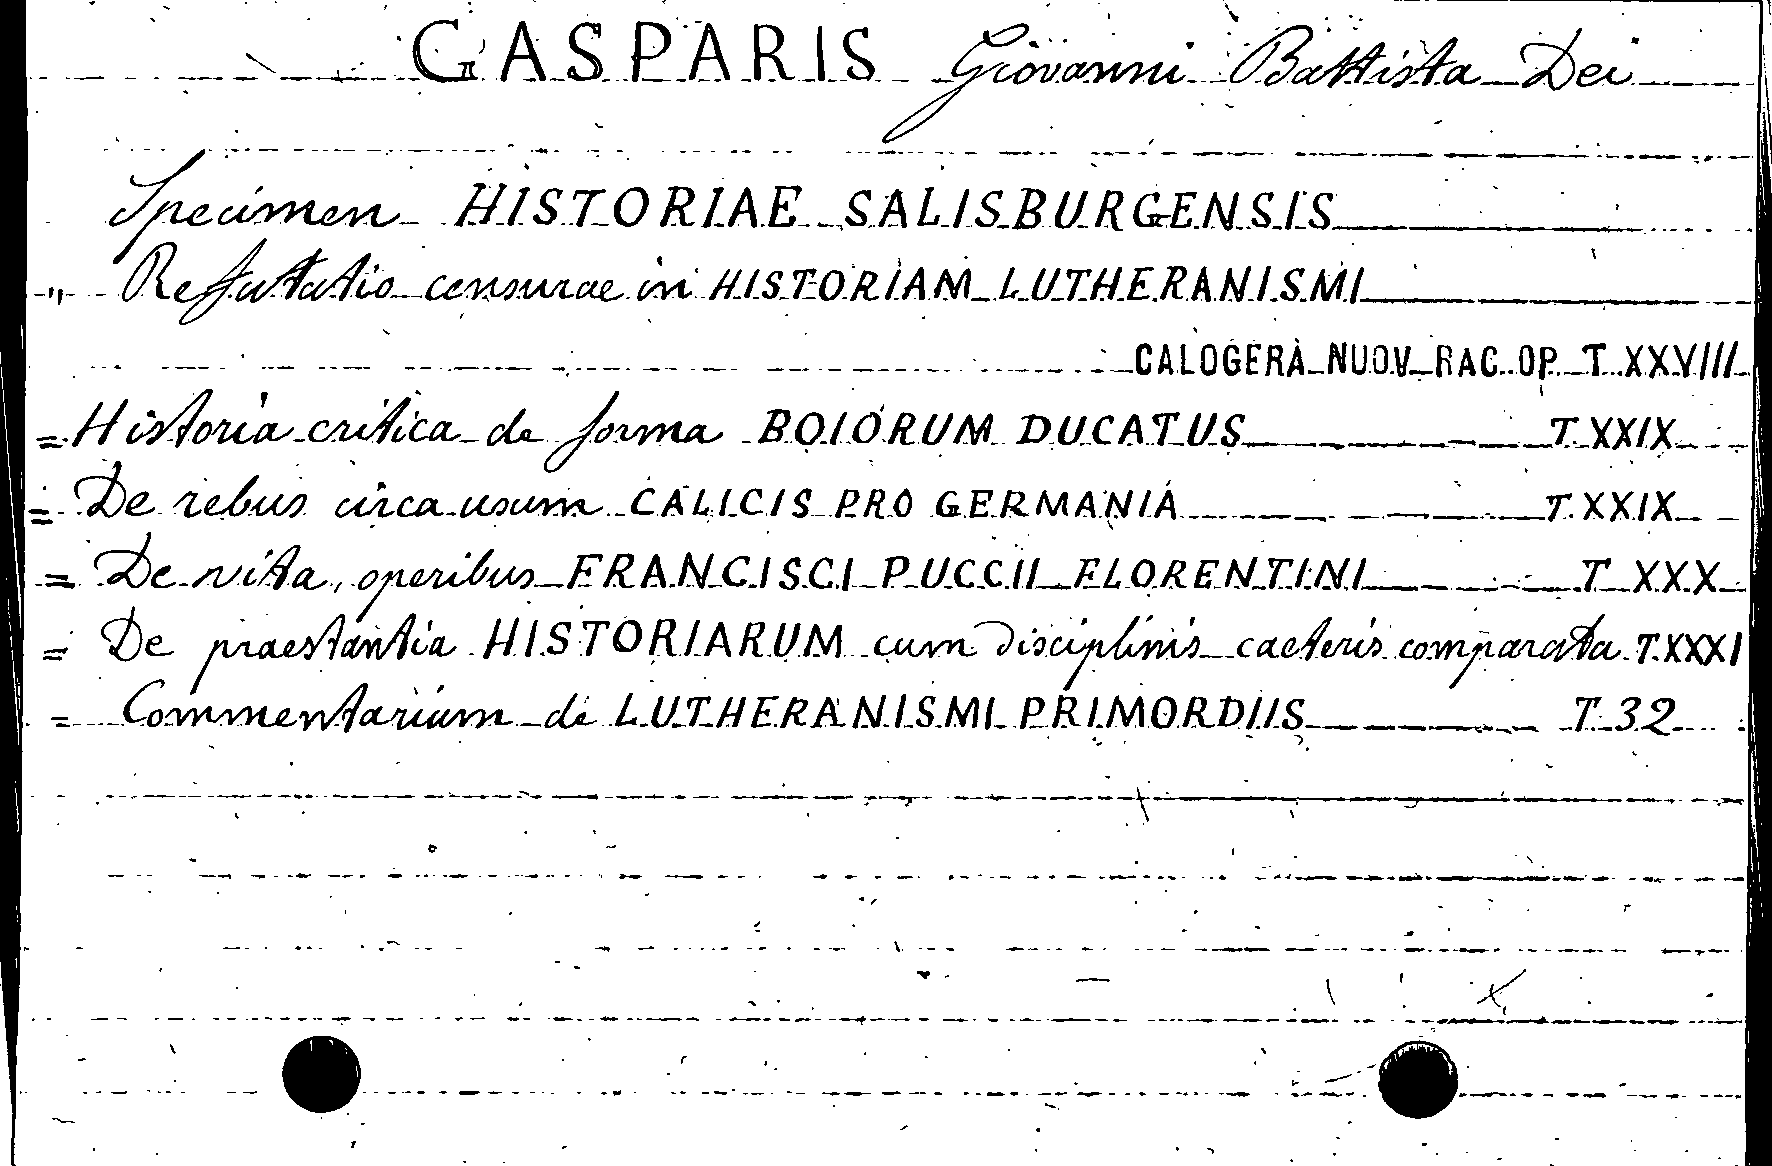 GASPARIS Giovanni Battista Dei
Specimen HISTORIAE SALISBURGENSIS
" Refutatio censurae in HISTORIAM LUTHERANISMI
CALOGERÀ NUOV RAC. OP. T. XXVIII
= Historia critica de forma BOIORUM DUCATUS T. XXIX
= De rebus circa usum CALICIS PRO GERMANIA T. XXIX
= De vita, operibus FRANCISCI PUCCII FLORENTINI T XXX
= De praestantia HISTORIARUM cum disciplinis caeteris comparata T. XXXI
= Commentarium de LUTHERANISMI PRIMORDIIS T. 32